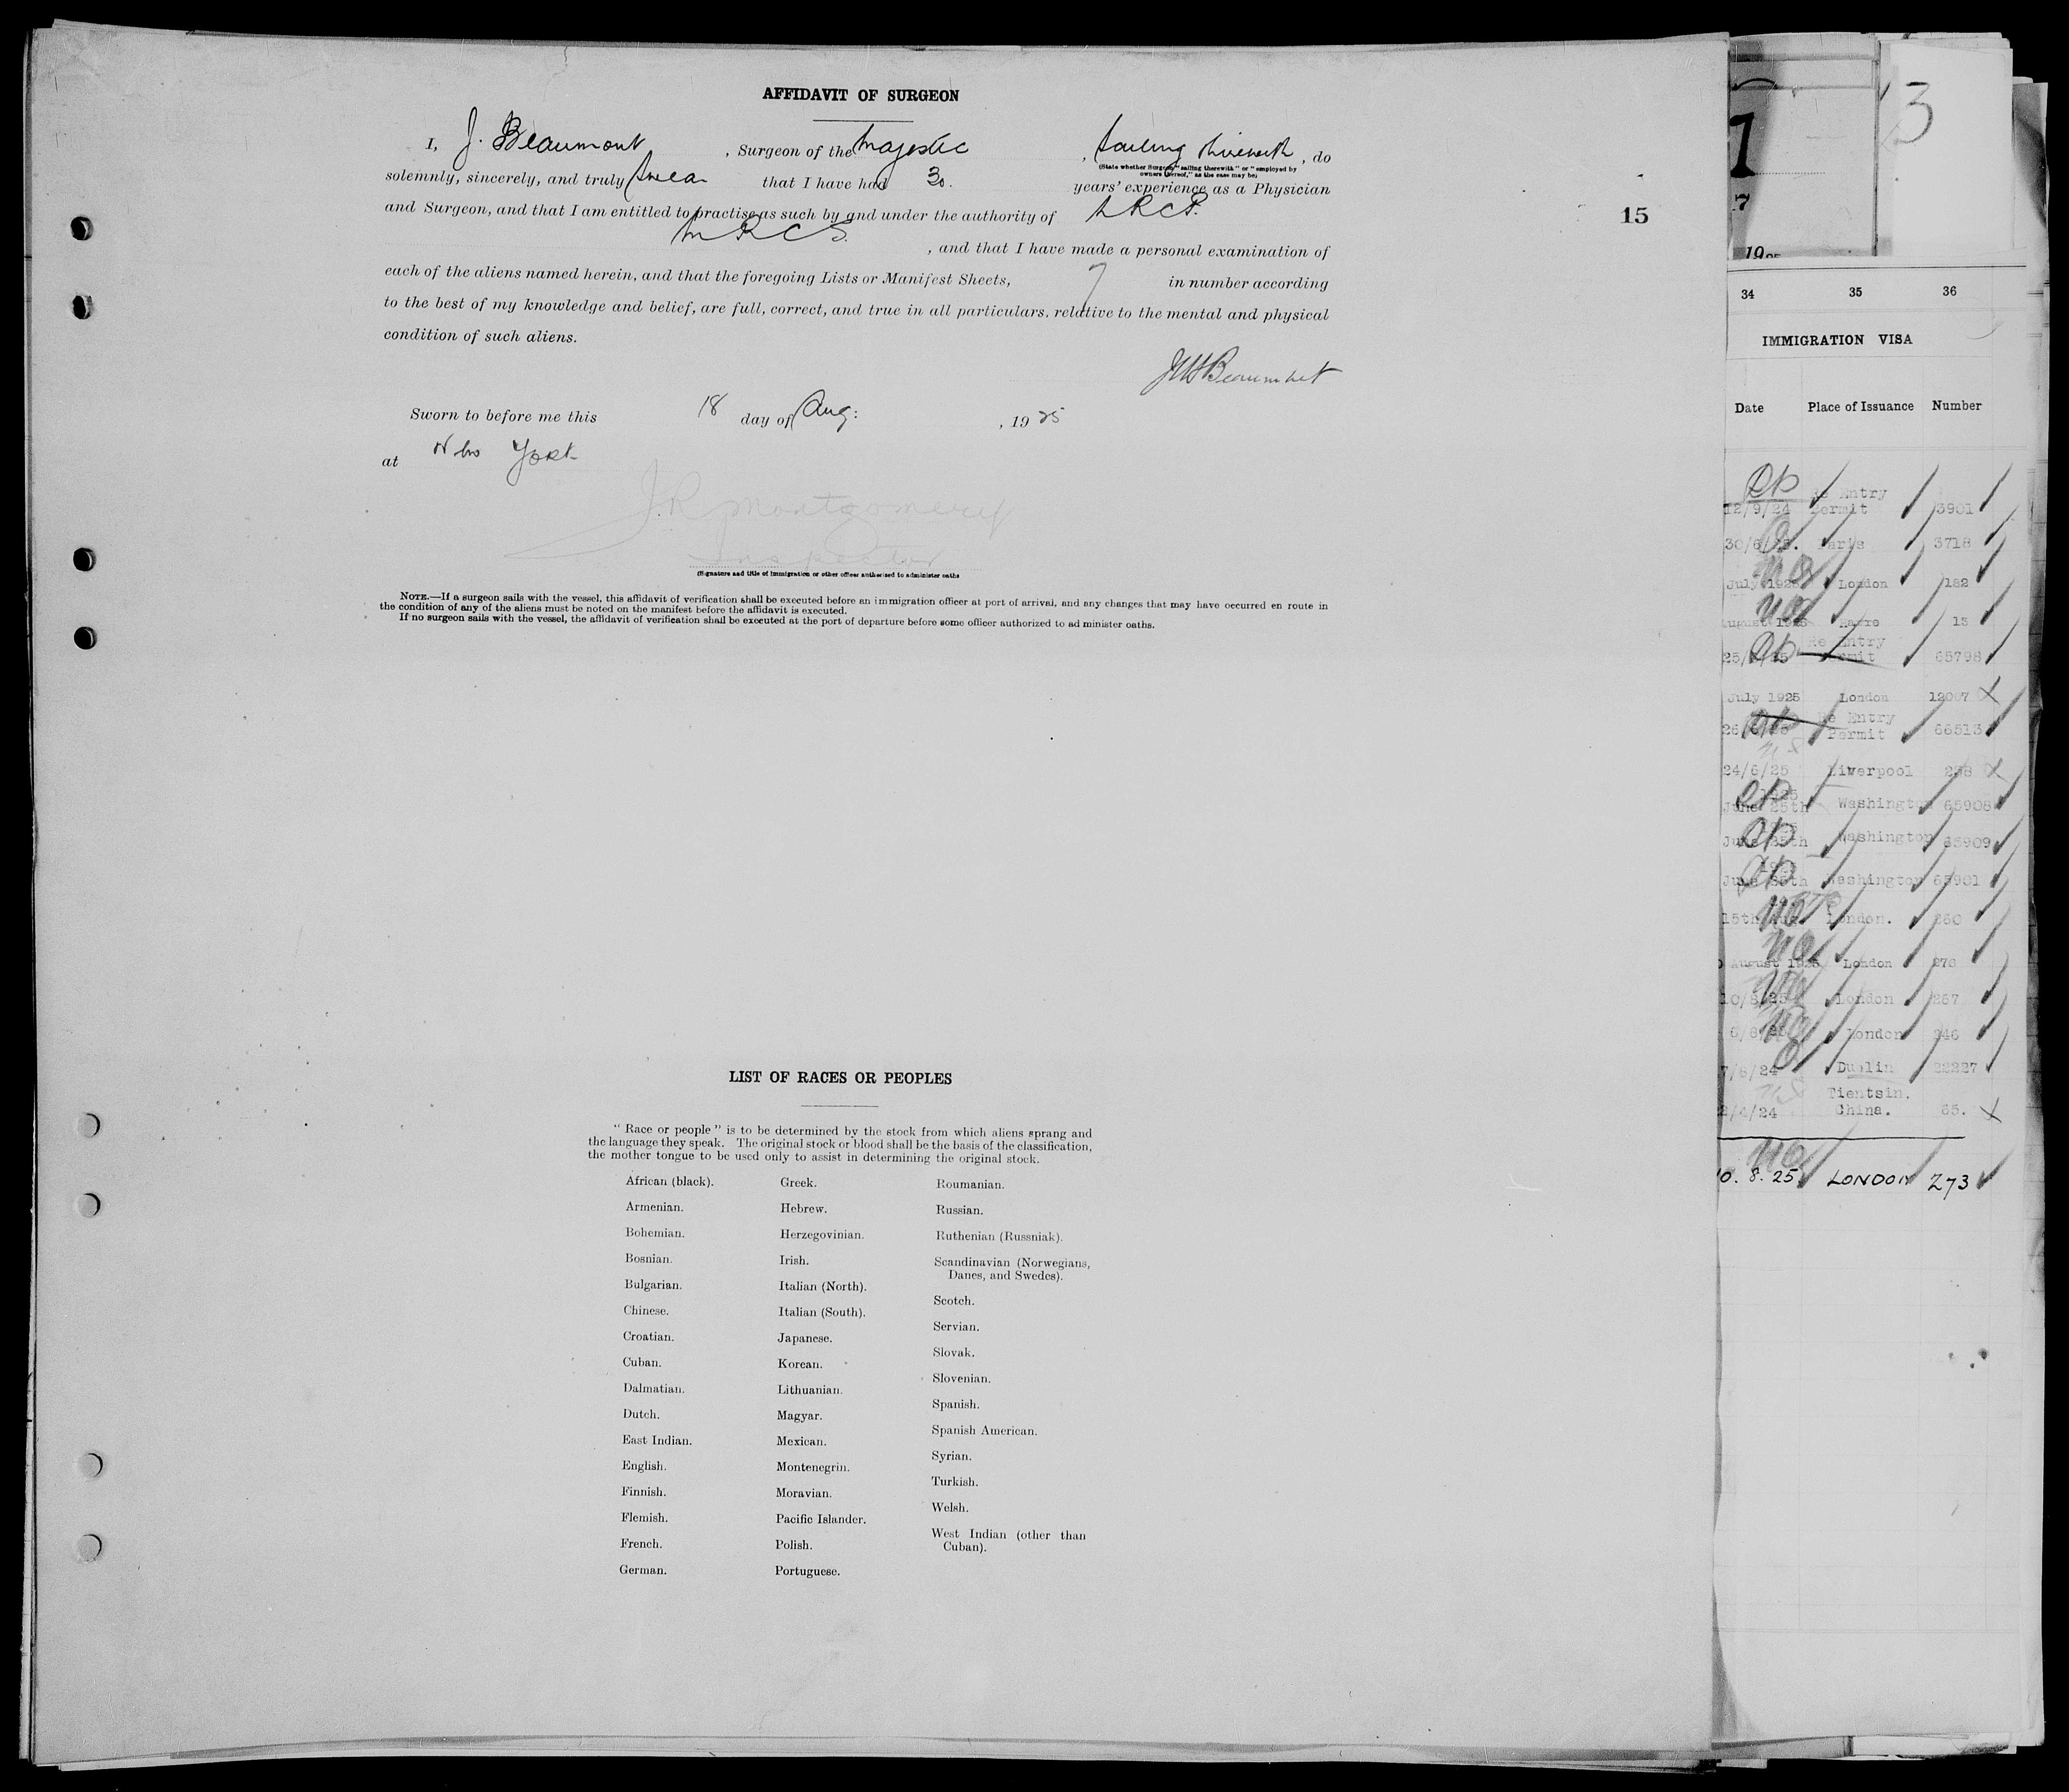 AFFIDAVIT OF SURGEON
I, J. Beaumont, Surgeon of the Majestic, sailing therewith, do
(State whether Surgeon "sailing therewith" or "employed by
owners thereof," as the case may be)
solemnly, sincerely, and truly swear that I have had 30. years' experience as a Physician
and Surgeon, and that I am entitled to practise as such by and under the authority of LRCP.
MRCS. , and that I have made a personal examination of
each of the aliens named herein, and that the foregoing Lists or Manifest Sheets, 7 in number according
to the best of my knowledge and belief, are full, correct, and true in all particulars, relative to the mental and physical
condition of such aliens.
Beaumont
Sworn to before me this 18 day of Aug: , 1925
at New York
J.R. Montgomery
Inspector
(Signature and title of immigration or other officer authorised to administer oaths
NOTE.—If a surgeon sails with the vessel, this affidavit of verification shall be executed before an immigration officer at port of arrival, and any changes that may have occurred en route in
the condition of any of the aliens must be noted on the manifest before the affidavit is executed.
If no surgeon sails with the vessel, the affidavit of verification shall be executed at the port of departure before some officer authorized to ad minister oaths.
15
LIST OF RACES OR PEOPLES
" Race or people " is to be determined by the stock from which aliens sprang and
the language they speak. The original stock or blood shall be the basis of the classification,
the mother tongue to be used only to assist in determining the original stock.
African (black).
Armenian.
Bohemian.
Bosnian.
Bulgarian.
Chinese.
Croatian.
Cuban.
Dalmatian.
Dutch.
East Indian.
English.
Finnish.
Flemish.
French.
German.
Greek.
Hebrew.
Herzegovinian.
Irish.
Italian (North).
Italian (South).
Japanese.
Korean.
Lithuanian.
Magyar.
Mexican.
Montenegrin.
Moravian.
Pacific Islander.
Polish.
Portuguese.
Roumanian.
Russian.
Ruthenian (Russniak).
Scandinavian (Norwegians,
Danes, and Swedes).
Scotch.
Servian.
Slovak.
Slovenian.
Spanish.
Spanish American.
Syrian.
Turkish.
Welsh.
West Indian (other than
Cuban).
3
34 35 36
IMMIGRATION VISA
Date Place of Issuance Number
Re Entry
12/9/24 Permit 3901
Paris 3718
July 1925 London 182
August 1925 Havre 13
Re Entry
Permit 65798
July 1925 London
Re Entry
Permit 66513
24/6/25 Liverpool
June 25th Washington 65908
June 25th Washington 65909
June 25th Washington 65901
London.
August 1925 London
10/8/25 London 267
6/8/25 London
Dublin 22227
Tientsin.
China. 65.
8.25 LONDON 273